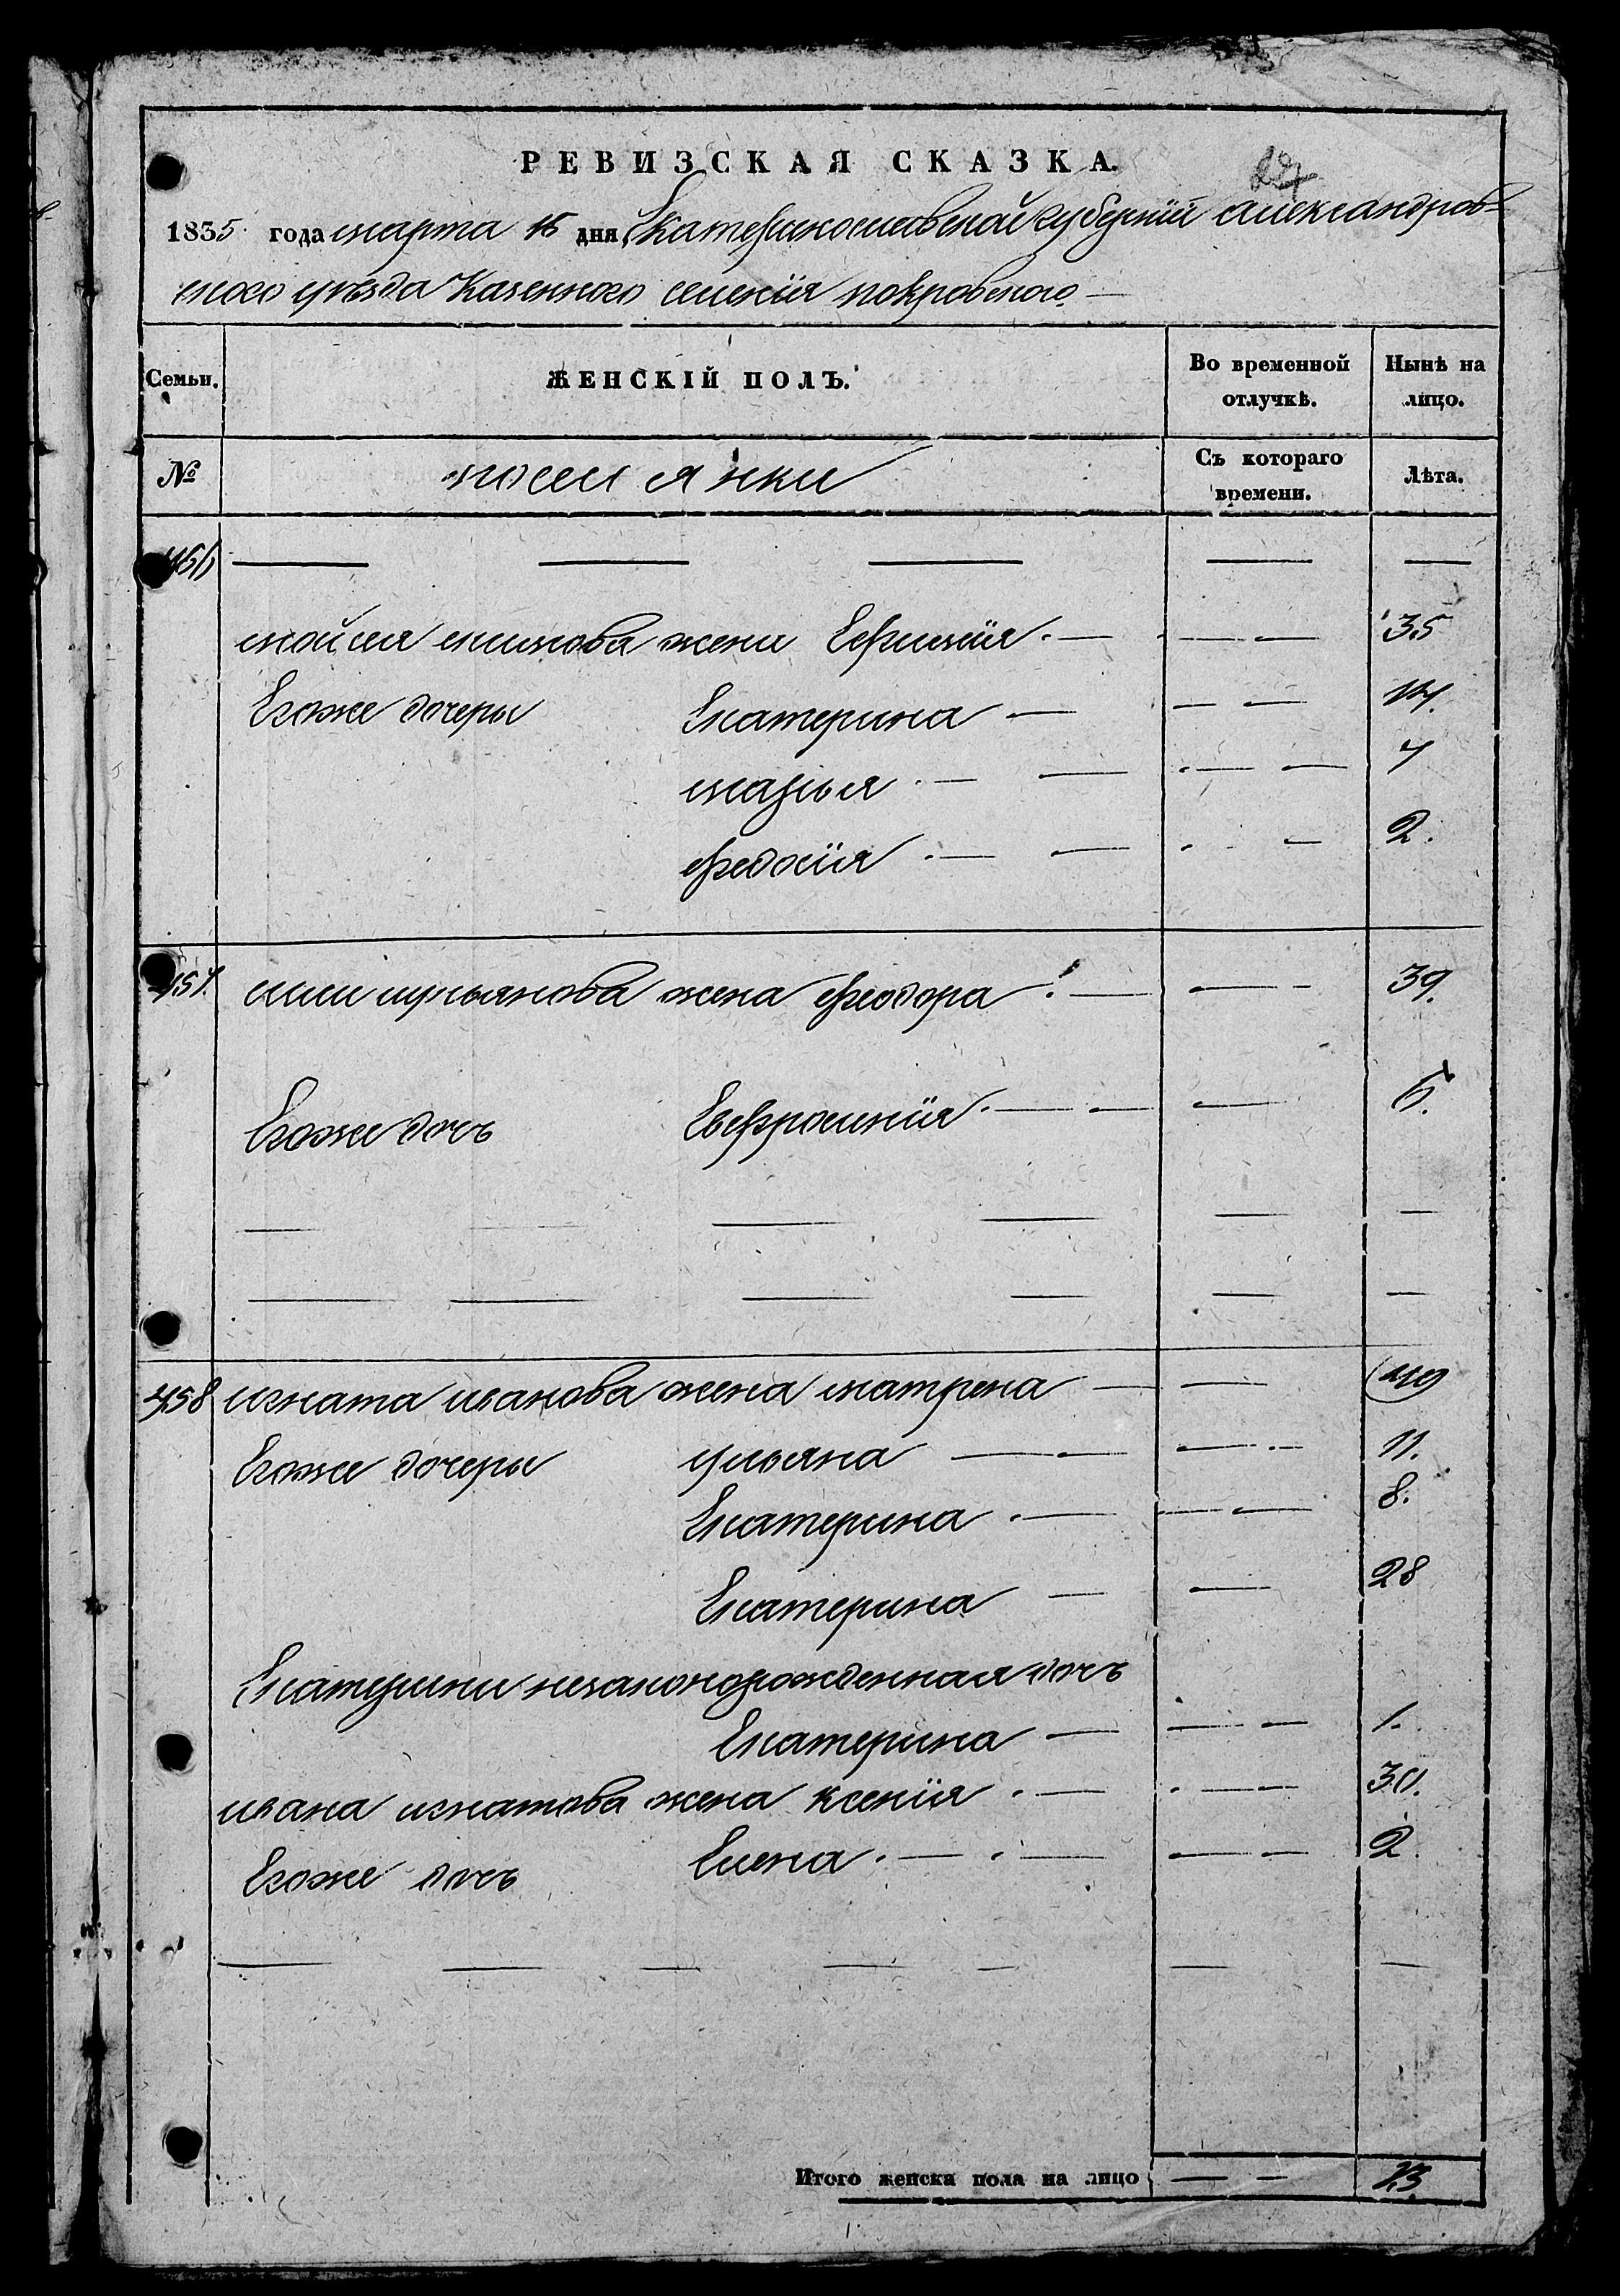 РЕВИЗСКАЯ СКАЗКА.
1835 года марта 15 дня Екатеринославской Губернiи Александров-
ского уезда Казенного селенiя покровского
Семьи.
ЖЕНСКIЙ ПОЛЪ.
Во временной отлучкѣ.
Нынѣ на лицо.
№
поселянки
Съ котораго времени.
Лѣта.
456
мойсея климова жена Ефимiя 35
Егоже дочеры Екатерина 14.
марья 7
федосiя 2.
457. жена феодора 39.
Егоже дочь Евфросинiя 6.
458 игната иванова жена матрена 49
Егоже дочеры ульяна 11.
Екатерина 8.
Екатерина 28
Екатерини незаконорожденная дочь
Екатерина 1.
ивана игнатова жена ксенiя 30.
Егоже дочь Елена 2.
Итого женска пола на лицо 13